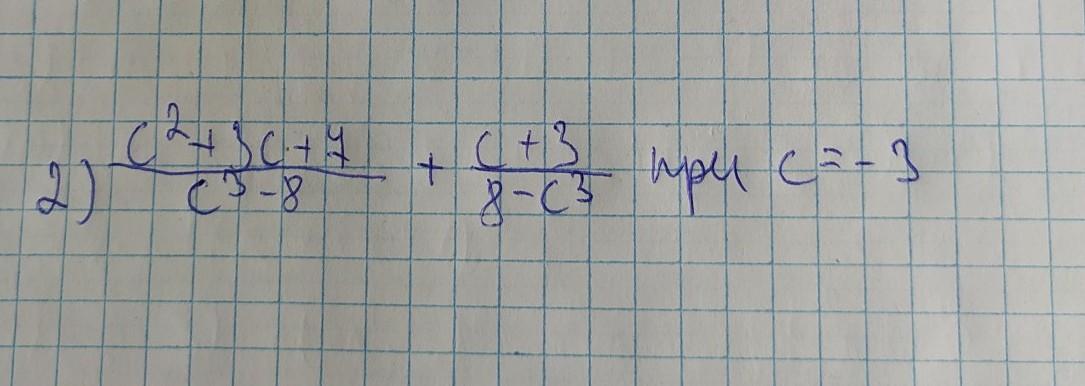 2) \frac{c^2+3c+7}{c^3-8} + \frac{c+3}{8-c^3} при c=-3